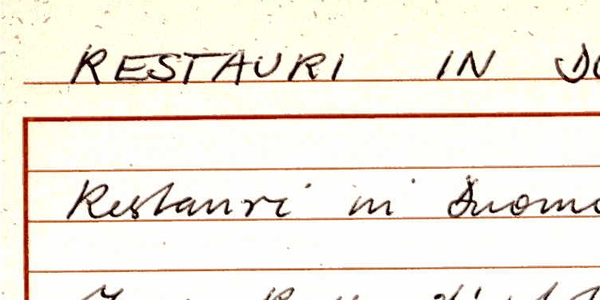 RESTAURI IN DU
Restauri in Duomo